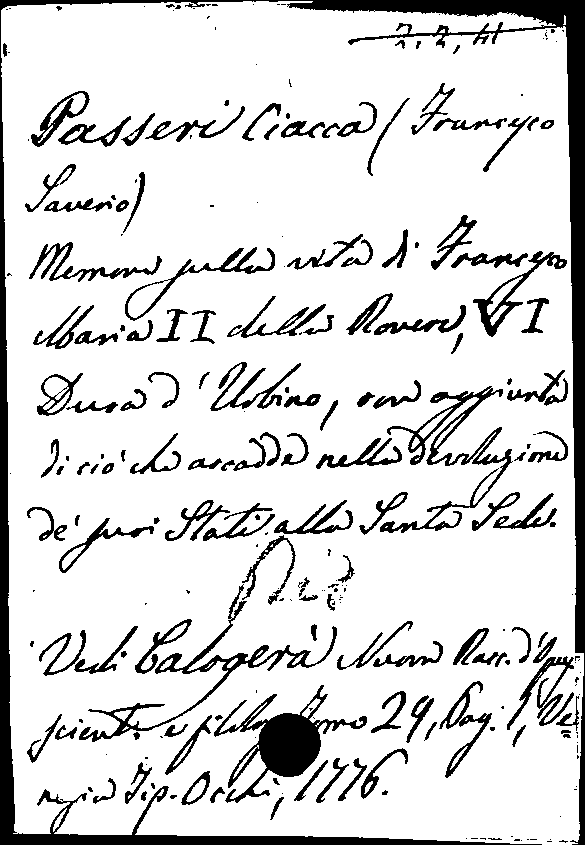 2.2,41
Passeri Ciacca (Francesco
Saverio)
Memorie sulla vita di Francesco
Maria II della Rovere, VI
Duca d'Urbino, con aggiunta
di ciò che accadde nella devoluzione
de' suoi Stati alla Santa Sede.
Vedi Calogerà Nuova Racc. d'Opus
scient. e filolog. Tomo 29, Pag. 1, Ve=
nezia Tip. Occhi, 1776.